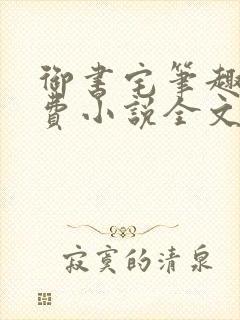 御書宅筆趣
費小說全文
寂寞的清泉